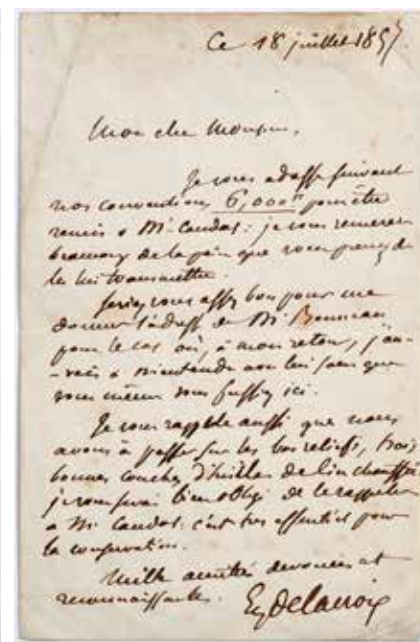 Ce 18 juillet 1857.
Mon cher Monsieur,
Je vous adresse suivant
nos conventions, 6,000 fr pour être
remis à Mr Candas : je vous remercie
beaucoup de la peine que vous prenez de
les lui transmettre.
Seriez vous assez bon pour me
donner l'adresse de Mr Bonneau
pour le cas où, à mon retour, j'au-
-rais à m'entendre avec lui sans que
vous même vous fussiez ici.
Je vous rappelle aussi que nous
avons à passer sur les bas reliefs, trois
bonnes couches d'huile de lin chauffée
je vous serais bien obligé de le rappeler
à Mr Candas : c'est très essentiel pour
la conservation.
Mille amitiés dévouées et
reconnaissantes.
Eug Delacroix